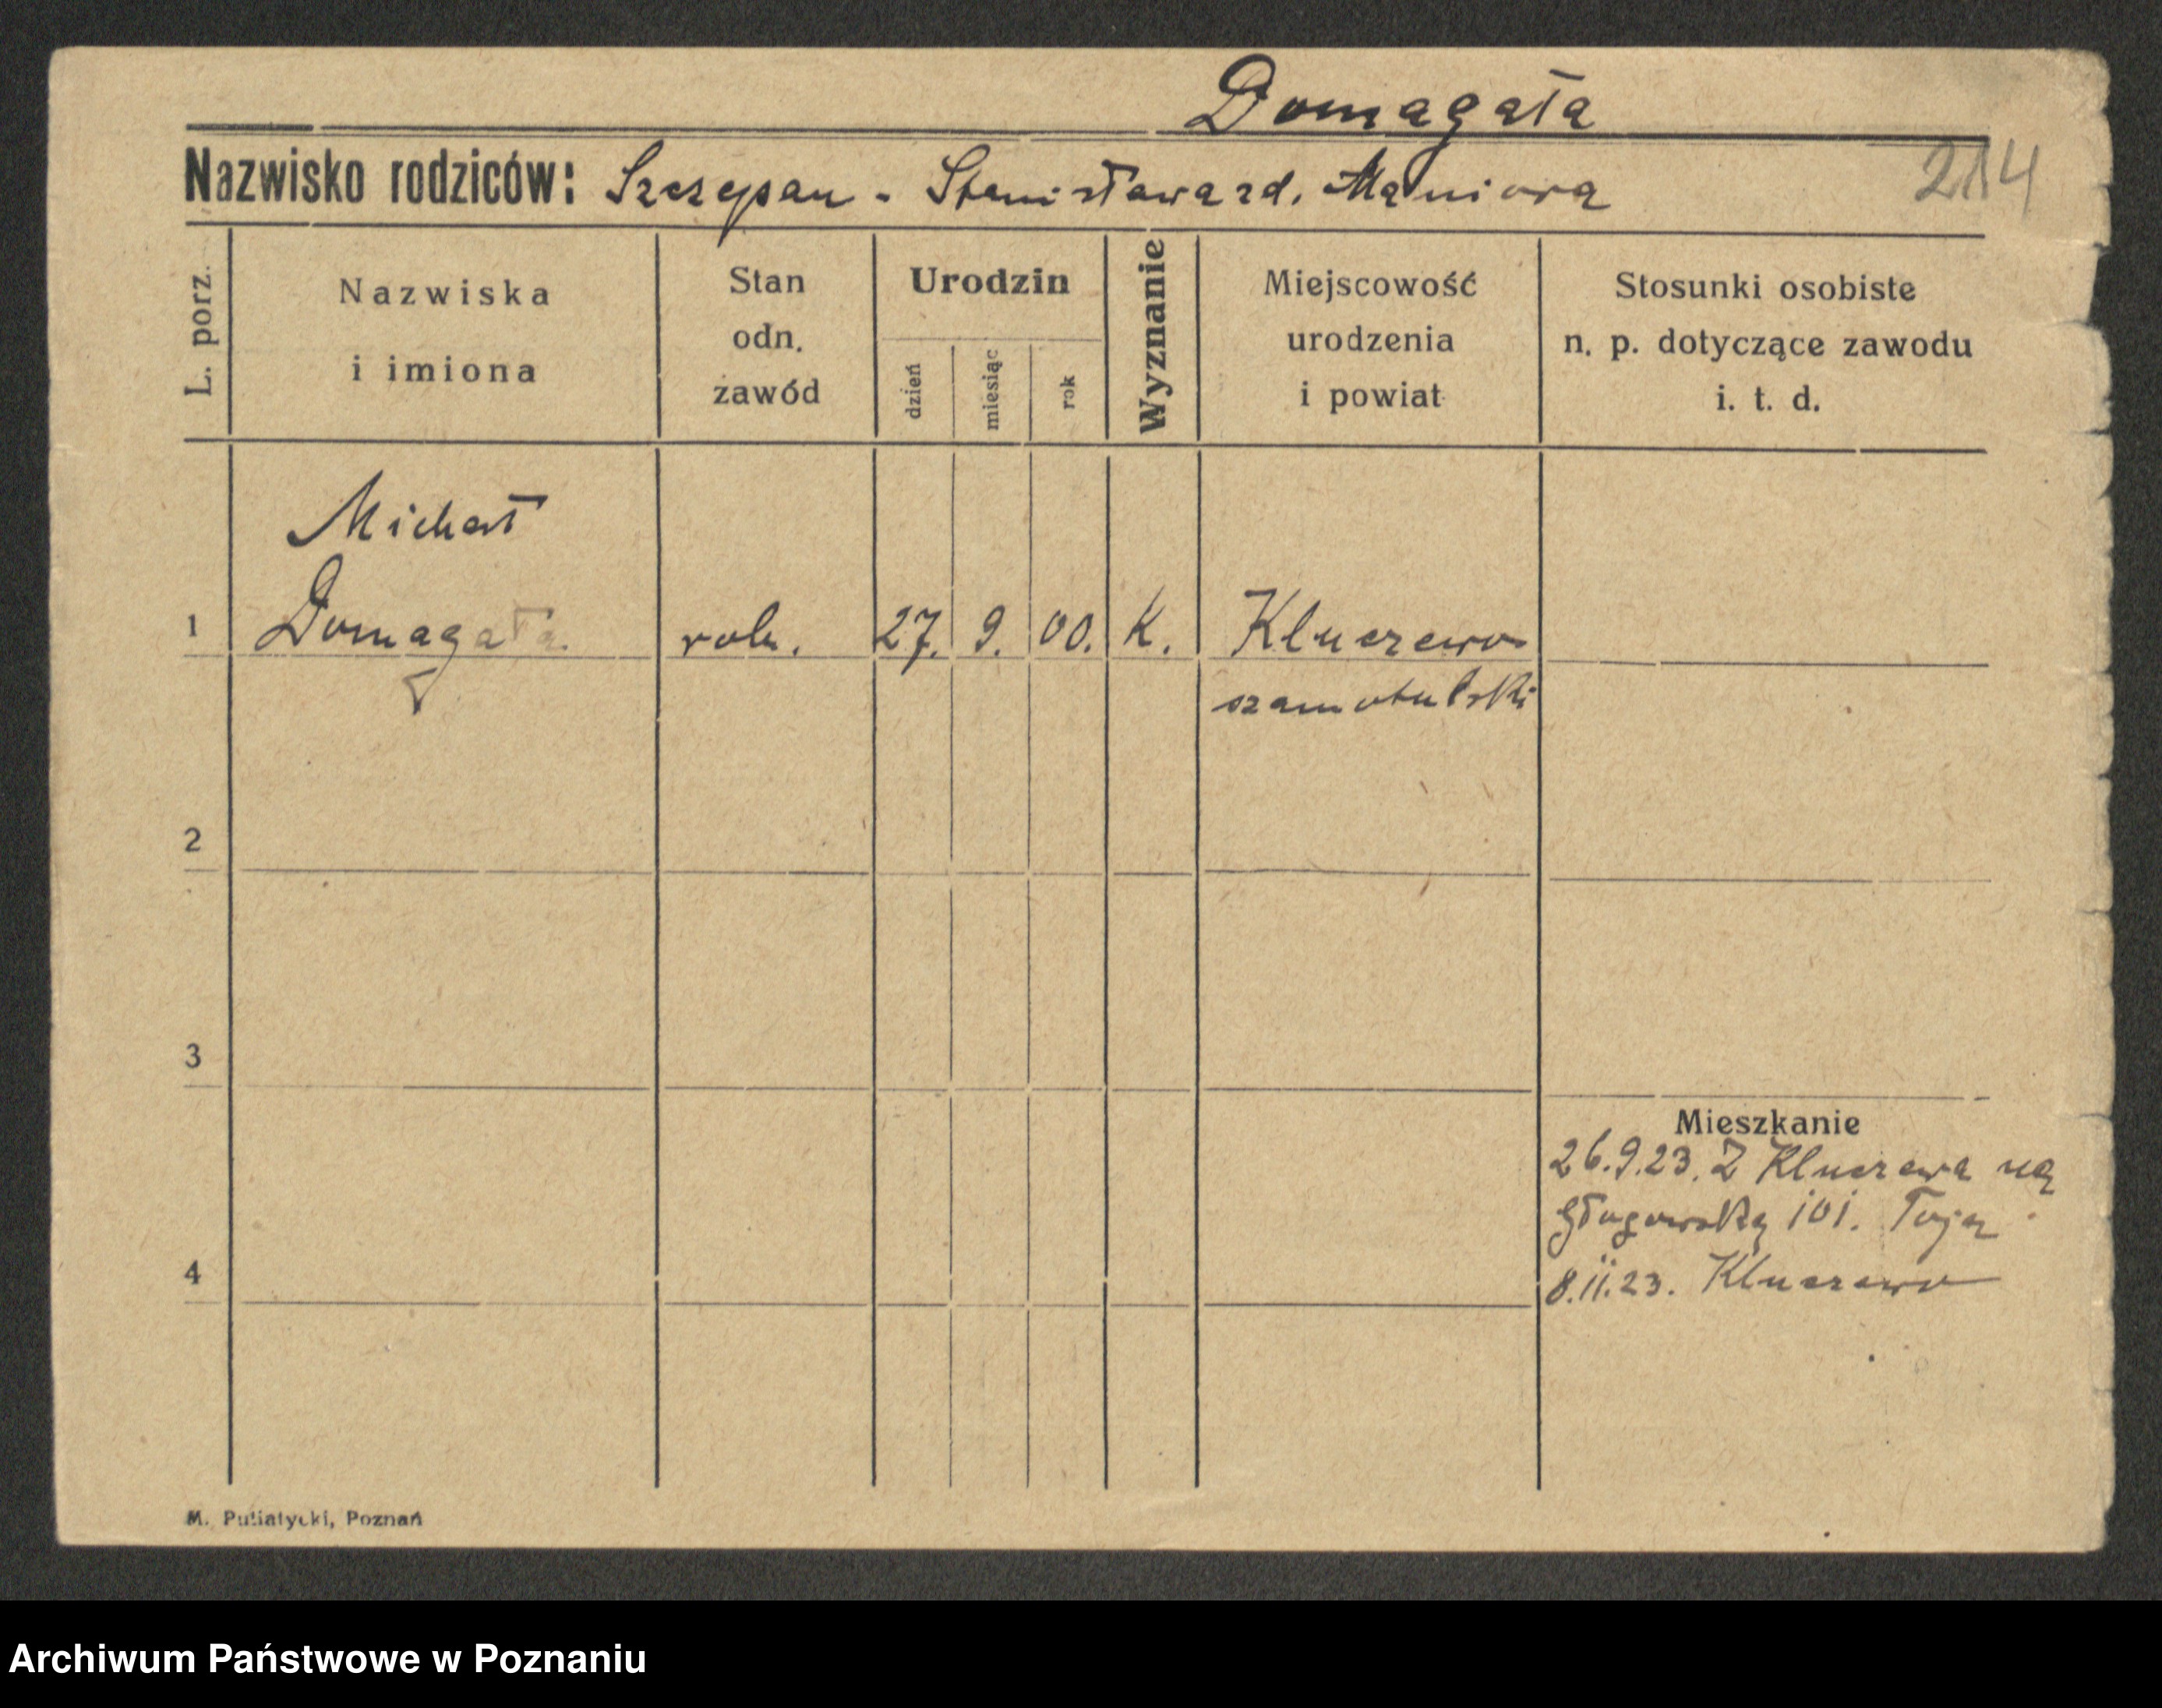 Domagała
Nazwisko rodziców: Szczepan - Stanisława zd. Maniora
214
L. porz.
Nazwiska
i imiona
Stan
odn.
zawód
Urodzin
dzień
miesiąc
rok
Wyznanie
Miejscowość
urodzenia
i powiat
Stosunki osobiste
n. p. dotyczące zawodu
i. t. d.
Michał
1 Domagała rob. 27. 9. 00. K. Kluczewo
szamotulski
2
3
Mieszkanie
26.9.23. Z Kluczewa na
Głogowską 101.
4
8.11.23. Kluczewo
M. Putiatycki, Poznań
Archiwum Państwowe w Poznaniu